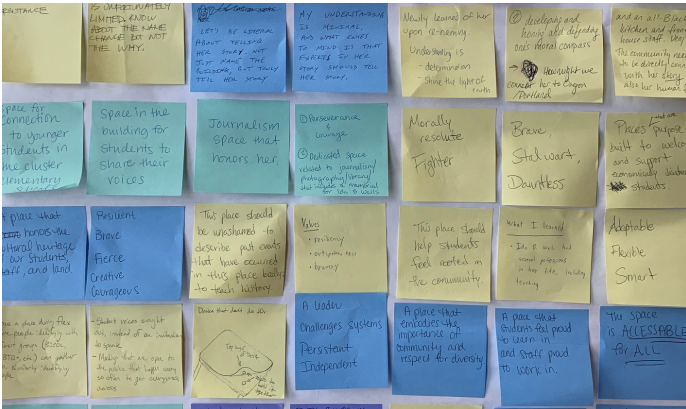 IS UNFORTUNATELY
LIMITED. KNOW
ABOUT THE NAME
CHANGE BUT NOT
THE WHY.
LET'S BE LITERAL
ABOUT TELLING
HER STORY. NOT
JUST NAME THE
BUILDING, BUT TRULY
TELL HER STORY
MY UNDERSTANDING
IS MINIMAL,
AND WHAT COMES
TO MIND IS THAT
EXPERTS IN HER
STORY SHOULD TELL
HER STORY.
Newly learned of her
upon re-naming.
Understanding is
- determination
- Shine the light of
truth
② developing and
honing and defending
one's moral compass
→ How might we
connect her to Oregon
/Portland
and an all-Black
kitchen and front
house staff.
The community needs
to be directly connected
with her story
also her human
Space for
connection
to younger
students in
the cluster
elementary schools
Space in the
building for
students to
share their
voices
Journalism
space that
honors her
① Perseverance
&
Courage
② Dedicated space
related to journalism/
photography/library
that includes a memorial
for Ida B Wells
Morally
resolute
Fighter
Brave,
Stalwart,
Dauntless
Place's purpose
built to welcome
and support
economically
students
A place that
honors the
cultural heritage
of our students,
staff, and land
Resilient
Brave
Fierce
Creative
Courageous
This place should
be unashamed to
describe past events
that have occurred
in this place
to teach history
Values
• resiliency
• bravery
-This place should
help students
feel rooted in
the community.
What I learned
• Ida B Wells had
several professions
in her life, including
teaching
Adaptable
Flexible
Smart
• Student voices sought
out, instead of an invitation
to speak
A leader
Challenges systems
Persistent
Independent
A place that
embodies the
importance of
community and
respect for diversity
A place that
students feel proud
to learn in
and staff proud
to work in.
The space
is ACCESSABLE
for ALL